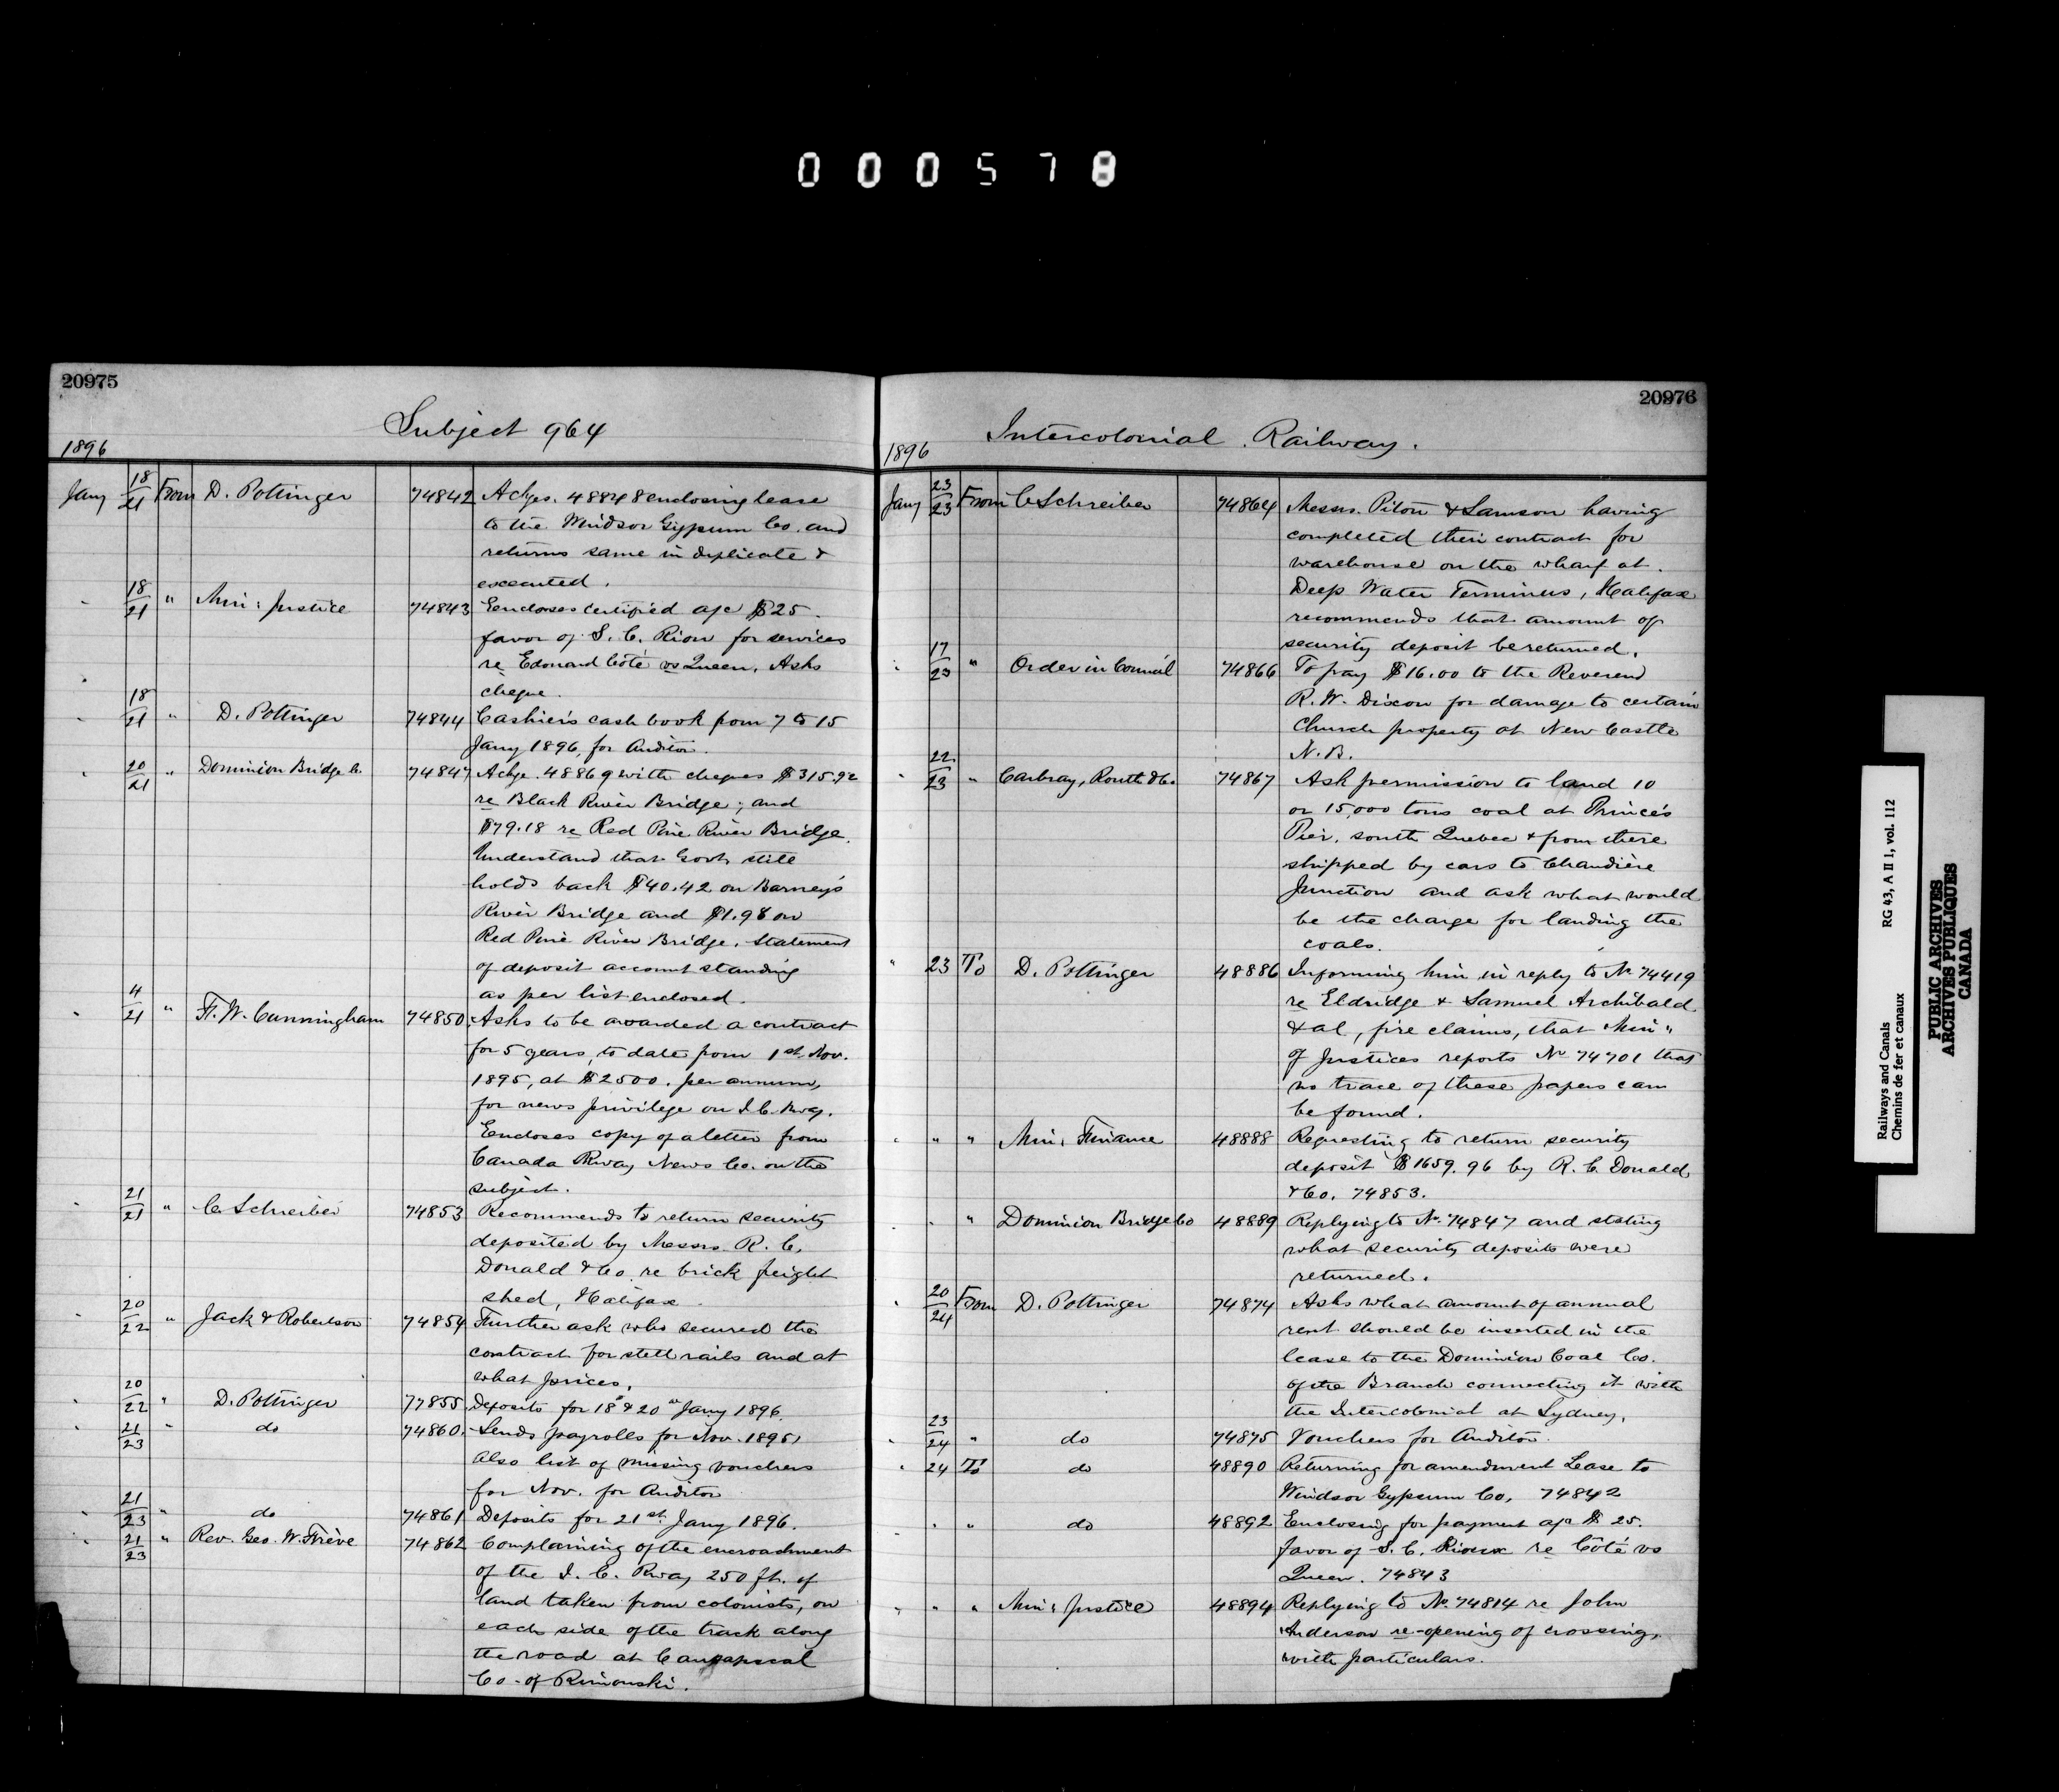 000578
20975
Subject 964
1896
Jany 18/21 From D. Pottinger 74842 Ackges. 48848 enclosing lease
to the Windsor Gypsum Co. and
returns same in duplicate &
executed.
" 18/21 " Min: Justice 74843 Encloses certified a/c $25.
favor of S. C. Riou for services
re Edouard Côté vs Queen. Asks
cheque.
" 18/21 " D. Pottinger 74844 Cashier's cash book from 7 to 15
Jany 1896, for Auditor.
" 20/21 " Dominion Bridge Co. 74847 Ackge. 48869 with cheques $315.92
re Black River Bridge; and
$79.18 re Red Pine River Bridge.
Understand that Govt. still
holds back $40.42 on Barney's
River Bridge and $1.98 on
Red Pine River Bridge. Statement
of deposit account standing
as per list enclosed.
" 4/21 " F. W. Cunningham 74850 Asks to be awarded a contract
for 5 years, to date from 1st Nov.
1895, at $2500. per annum,
for news privilege on I. C. Rway.
Encloses copy of a letter from
Canada Rway News Co. on the
subject.
" 21/21 " C. Schreiber 74853 Recommends to return security
deposited by Messrs R. C.
Donald & Co. re brick freight
shed, Halifax.
" 20/22 " Jack & Robertson 74854 Further ask who secured the
contract for stell rails and at
what prices.
" 20/22 " D. Pottinger 77855 Deposits for 18 & 20 Jany 1896.
" 21/23 " do 74860 Sends payrolls for Nov. 1895,
Also list of missing vouchers
for Nov. for Auditor
" 21/23 " do 74861 Deposits for 21st Jany 1896.
" 21/23 " Rev. Geo. W. 74862 Complaining of the encroachment
of the I. C. Rway 250 ft. of
land taken from colonists, on
each side of the track along
the road at
Co. of Rimouski.
20976
Intercolonial Railway.
1896
Jany 23/23 From C Schreiber 74864 Messrs. Piton & Samson having
completed their contract for
warehouse on the wharf at
Deep Water Terminus, Halifax
recommends that amount of
security deposit be returned.
" 17/23 " Order in Council 74866 To pay $16.00 to the Reverend
R. W. Dixon for damage to certain
Church property at New Castle
N. B.
" 22/23 " Carbray, Routh & Co. 74867 Ask permission to land 10
or 15,000 tons coal at Prince's
Pier, south Quebec & from there
shipped by cars to Chaudière
Junction and ask what would
be the charge for landing the
coals.
" 23 To D. Pottinger 48886 Informing him in reply to No 74419
re Eldridge & Samuel Archibald
& al, fire claims, that Min"
of Justices reports No 74701 that
no trace of these papers can
be found.
" " " Min: Finance 48888 Requesting to return security
deposit $1659.96 by R. C. Donald
& Co. 74853.
" " Dominion Bridge Co 48889 Replying to No. 74847 and stating
what security deposits were
returned.
" 20/24 From D. Pottinger 74874 Asks what amount of annual
rent should be inserted in the
lease to the Dominion Coal Co.
of the Branch connecting it with
the Intercolonial at Sydney.
23/24 " do 74875 Vouchers for Auditor.
" 24 To do 48890 Returning for amendment Lease to
Windsor Gypsum Co. 74842
" " do 48892 Enclosing for payment a/c $25.
favor of S. C. Rioux re Côté vs
Queen. 74843
" " " Min: Justice 48894 Replying to No. 74814 re John
Anderson re-opening of crossing,
with particulars.
Railways and Canals
Chemins de fer et canaux
RG 43, A II 1, vol. 112
PUBLIC ARCHIVES
ARCHIVES PUBLIQUES
CANADA